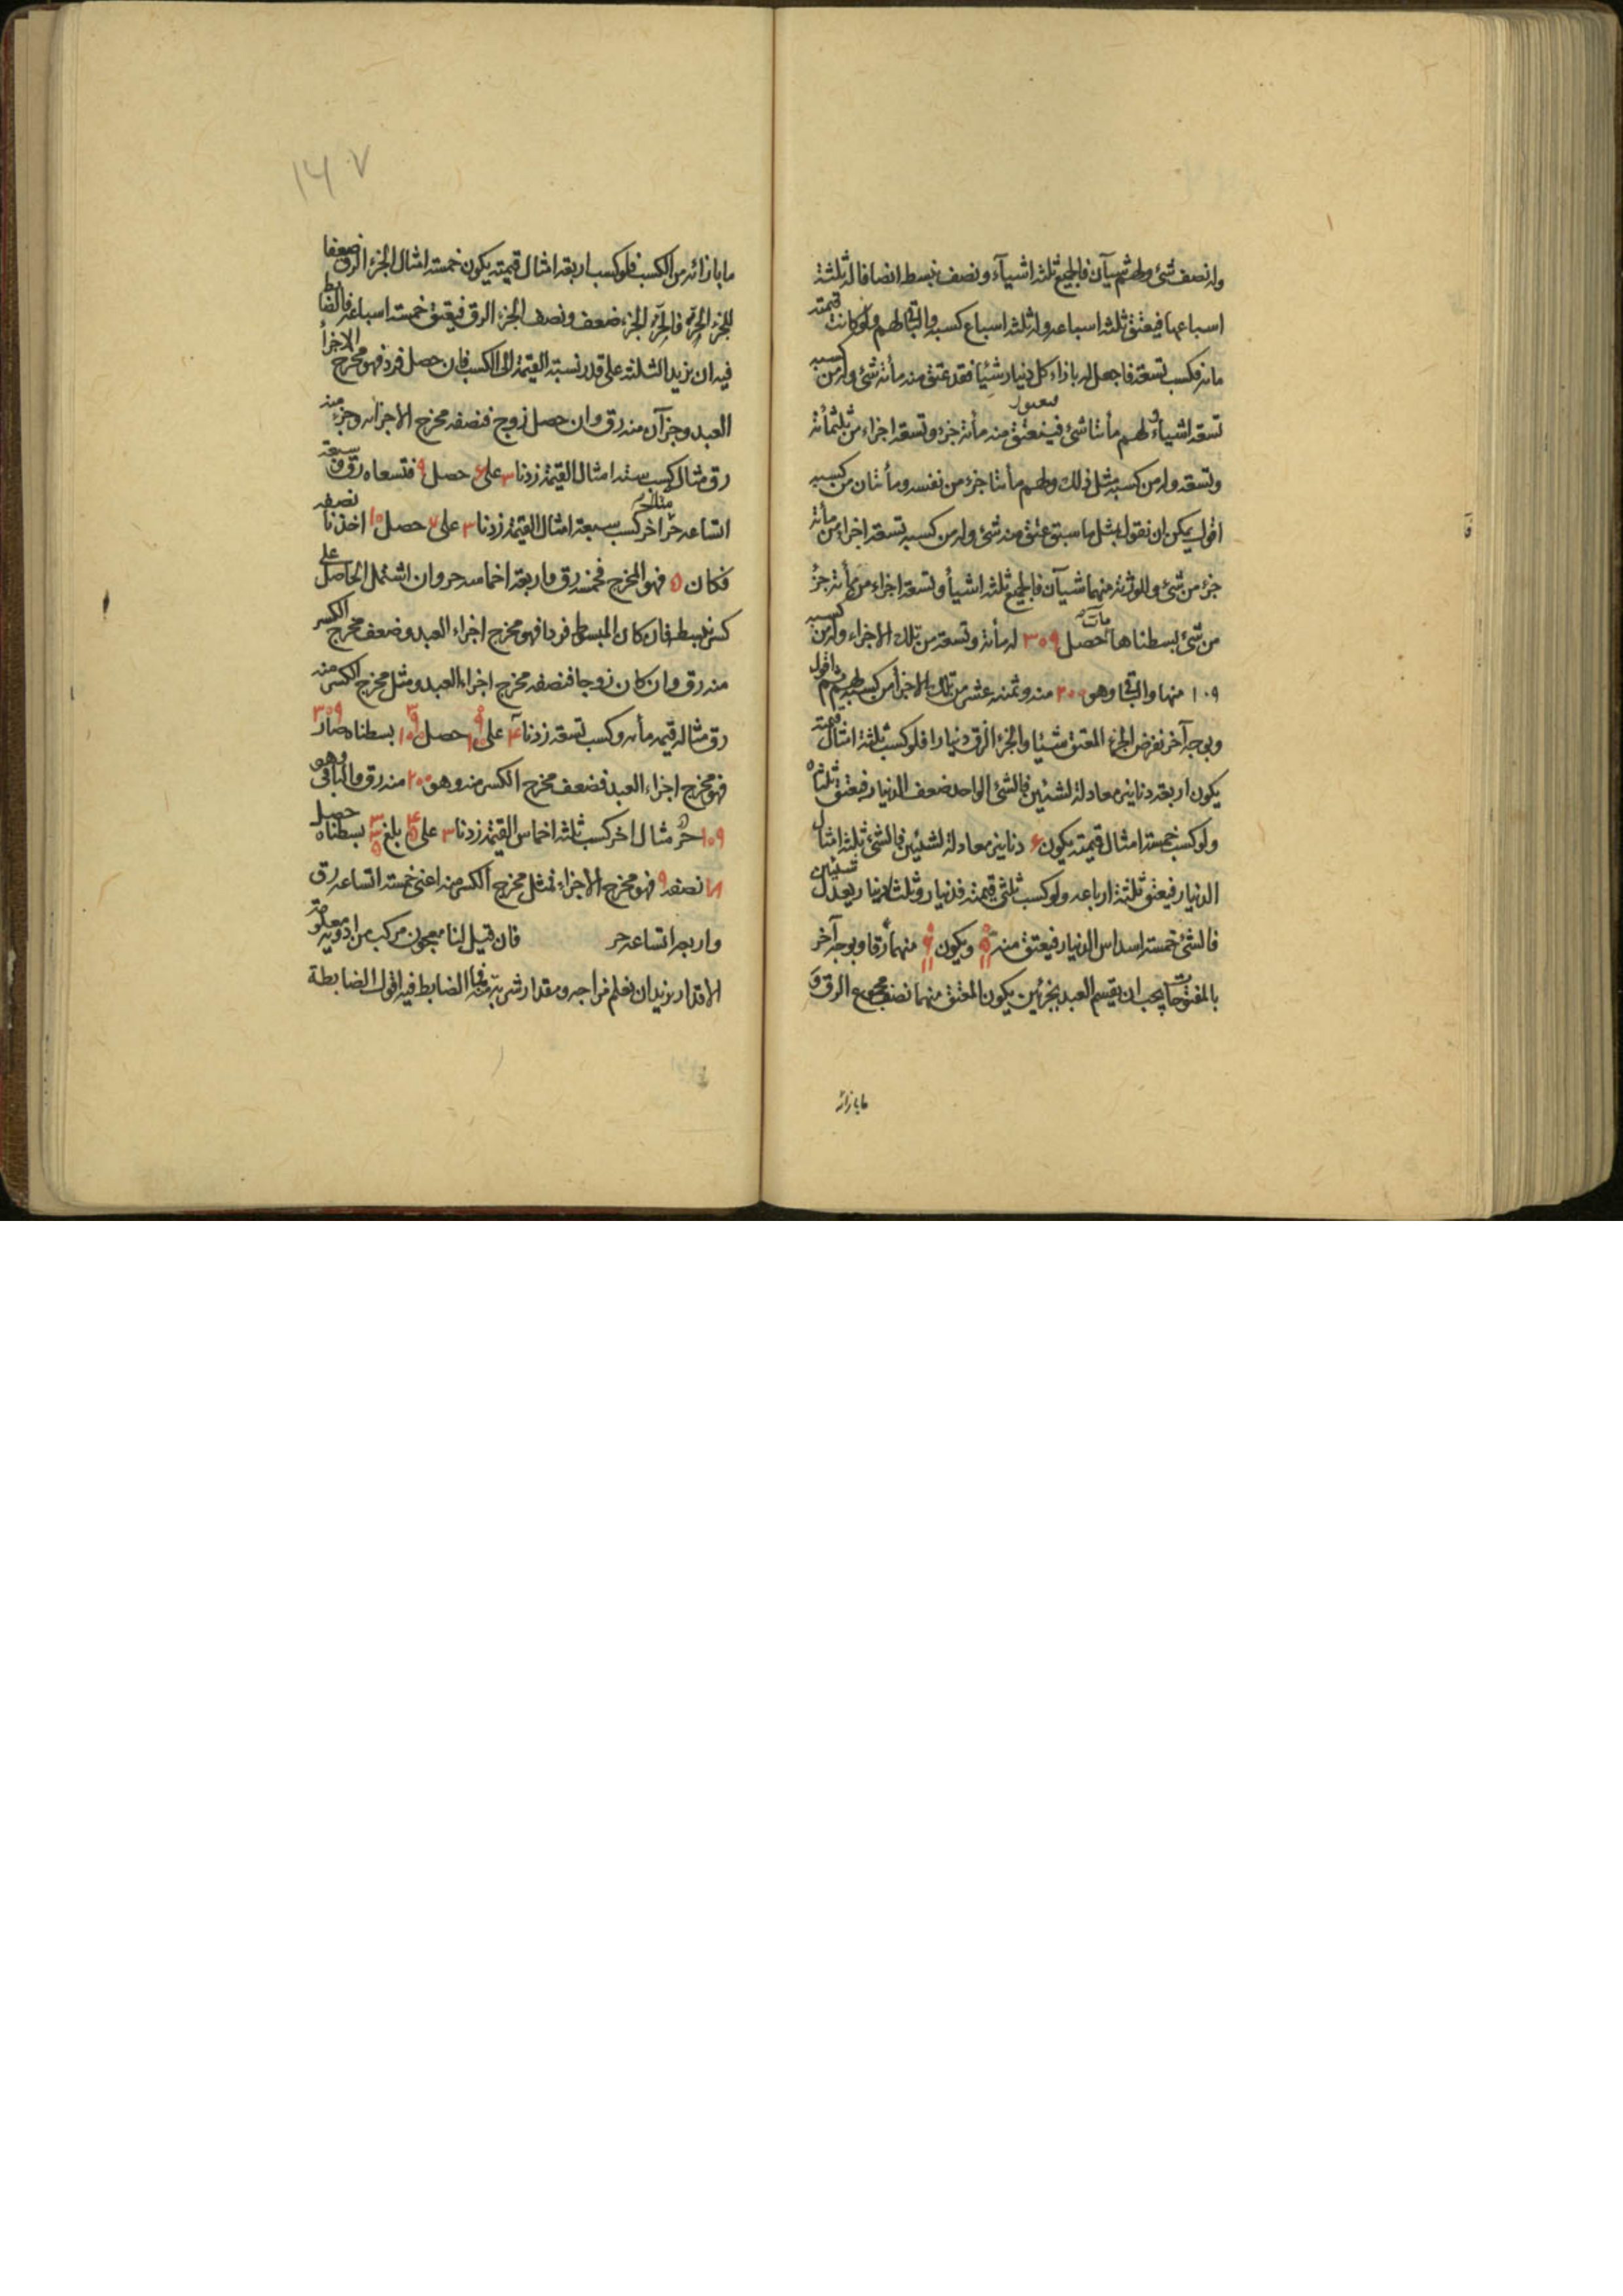 وله نصف شئ ولهم شيآن فالجميع ثلثه اشيآء ونصف نبسط انصافا له ثلثة
اسباعها فيعتق ثلثه اسباعه وله ثلثه اسباع كسبه والباقى لهم ولو كانت قيمته
مائه فكسب تسعه فاجعل له بازاء كل دينار شيئا فقد عتق منه مأئه شئ وله من كسبه
تسعه اشياء ولهم مأتا شئ فينعتق منه مأئه جزء وتسعه اجزاء من ثلثمأئة
وتسعه وله من كسبه مثل ذلك ولهم مأتا جزء من نفسه ومأتان من كسبه
اقول يمكن ان نقول بمثل ما سبق عتق منه شئ وله من كسبه تسعة اجزاء من مأئة
جزء من شئ وللورثة منهما شيآن فالجميع ثلثه اشيأ وتسعه اجزاء من مأئة جزء
من شئ بسطناها مآت حصل ٣٠٩ له مأئه وتسعه من تلك الاجزاء وله من كسبه
١٠٩ منها والباقى وهو ٢٠٠ منه وثمنه عشر من تلك الاجزأ من كسبه لهم ثم اقول
وبوجه آخر نفرض الجزء المعتق شيئا والجزء الرق دينارا فلو كسب ثلثة امثال قيمته
يكون اربعه دنانير معادلة لشيئين فالشئ الواحد ضعف الدينار فيعتق ثلثاه
ولو كسب خمسة امثال قيمته يكون ٦ دنانير معادلة لشيئين فالشئ ثلثه امثال
الدينار فيعتق ثلثة ارباعه ولو كسب ثلثى قيمته فدينار وثلثا دينار يعدل شيئين
فالشئ خمسه اسداس الدينار فيعتق منه ٥ ١١ ويكون ٦ ١١ منهما رقا وبوجه آخر
بالمفتوحات يجب ان يقسم العبد بجزئين يكون المعتق منهما نصف مجموع الرق و
مابازائه
١٦٧
مابازائه من الكسب فلو كسب اربعه امثال قيمته يكون خمسه امثال الجزء الرق ضعفا
للجزء الحر فالحر الجزء ضعف ونصف الجزء الرق فيعتق خمسه اسباعه فالضابط
فيه ان نزيد الثلثة على قدر نسبة القيمة الى الكسب فان حصل فرد فهو مخرج الاجزأ
العبد وجزآن منه رق وان حصل زوج فنصفه مخرج الاجزاء وجزء منه
رق مثاله كسب سته امثال القيمة زدنا ٣ على ٦ حصل ٩ فتسعاه رق وسبعة
اتساعه حر مثال آخر كسب سبعة امثال القيمة زدنا ٣ على ٧ حصل ١٠ اخذنا نصفه
فكان ٥ فهو المخرج فخمسه رق واربعه اخماسه حر وان اشتمل الحاصل على
كسر نبسطه فان كان المبسوط فردا فهو مخرج اجزاء العبد وضعف مخرج الكسر
منه رق وان كان زوجا فنصفه مخرج اجزاء العبد ومثل مخرج الكسر منه
رق مثاله قيمه مأئه وكسب تسعه زدنا ٣ على ٩ ١٠٠ حصل ٣ ٩ ١٠٠ بسطناه صار ٣٠٩
فهو مخرج اجزاء العبد فضعف مخرج الكسر منه وهو ٢٠٠ منه رق والباقى وهو
١٠٩ حر مثال اخر كسب ثلثه اخماس القيمة زدنا ٣ على ٣ ٥ بلغ ٣ ٣ ٥ بسطناه حصل
١٨ نصفه ٩ فهو مخرج الاجزاء فمثل مخرج الكسر منه اعنى خمسه اتساعه رق
واربعه اتساعه حر فان قيل لنا معجون مركب من ادويه معلومة
الاقدار نريد ان نعلم مزاجه ومقدار شربته فما الضابط فيه اقول الضابطة